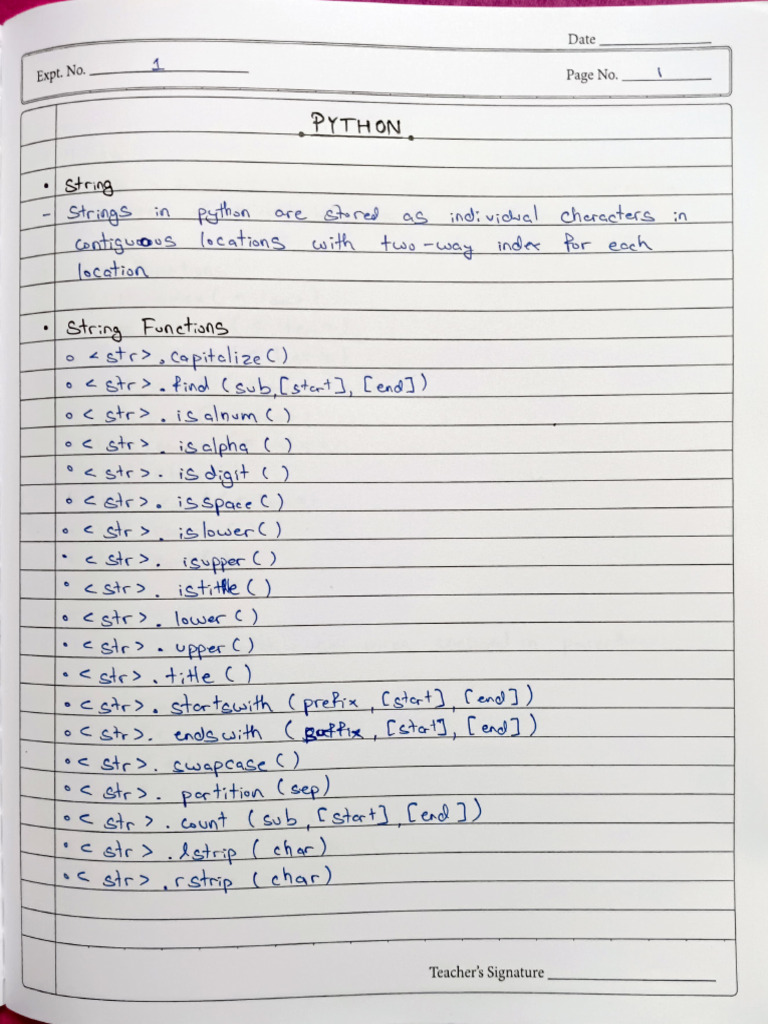 Date
Expt. No. 1
Page No. 1
PYTHON
• String
- Strings in python are stored as individual characters in
contiguous locations with two-way index for each
location
• String Functions
o <str>.capitalize()
o <str>.find (sub,[start], [end])
o <str>.isalnum()
o <str>.isalpha ()
o <str>.isdigit ()
o <str>.isspace()
o <str>.islower()
• <str>.isupper()
• <str>.istitle()
o <str>.lower()
• <str>.upper()
• <str>.title ()
o <str>.startswith (prefix, [start], [end])
o <str>.endswith (suffix, [start], [end])
o <str>.swapcase()
o <str>.partition (sep)
o <str>.count (sub, [start], [end])
• <str>.lstrip (char)
• <str>.rstrip (char)
Teacher's Signature